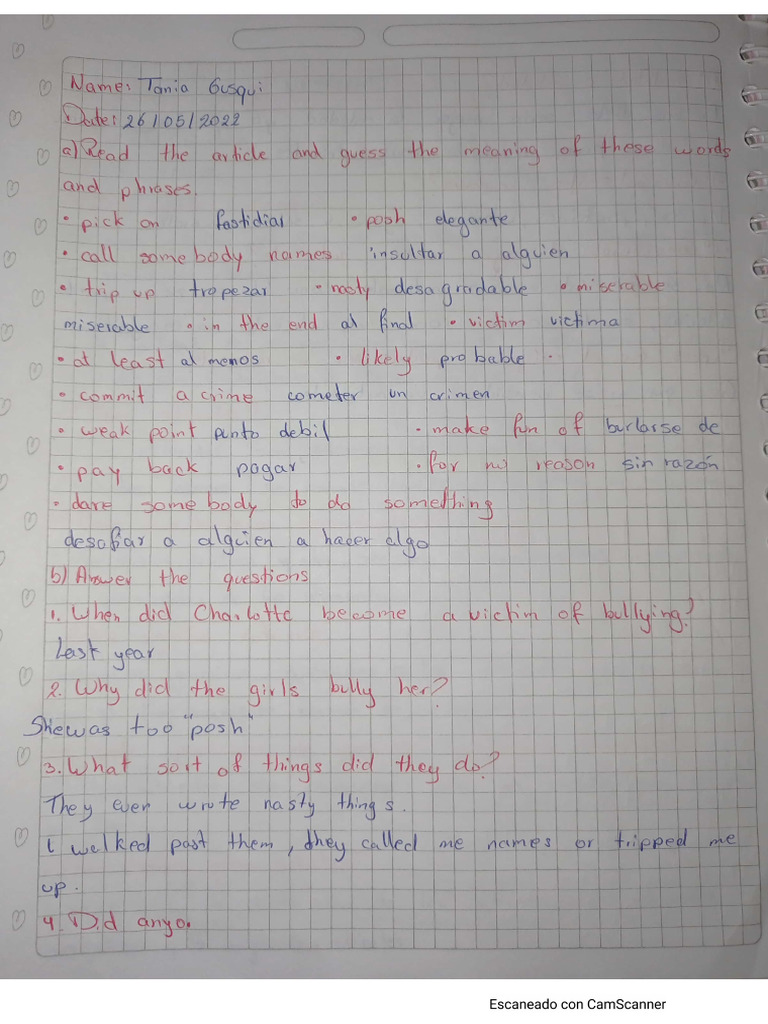 Name: Tania Gusqui
Date: 26/05/2022
a) Read the article and guess the meaning of these words
and phrases.
• pick on fastidiar • posh elegante
• call somebody names insultar a alguien
• trip up tropezar • nasty desagradable • miserable
miserable • in the end al find • victim victima
• at least al menos • likely probable •
• commit a crime cometer un crimen
• weak point punto debil • make fun of burlarse de
• pay back pagar • for no reason sin razón
• dare somebody to do something
desafiar a alguien a hacer algo
b) Answer the questions
1. When did Charlotte become a victim of bullying?
Last year
2. Why did the girls bully her?
She was too "posh"
3. What sort of things did they do?
They even wrote nasty things.
I walked past them, they called me names or tripped me
up.
4. Did anyo.
Escaneado con CamScanner